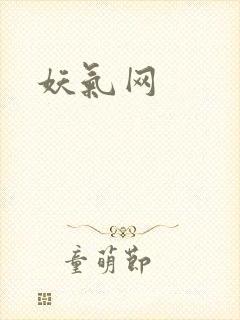 妖氣网
童萌節